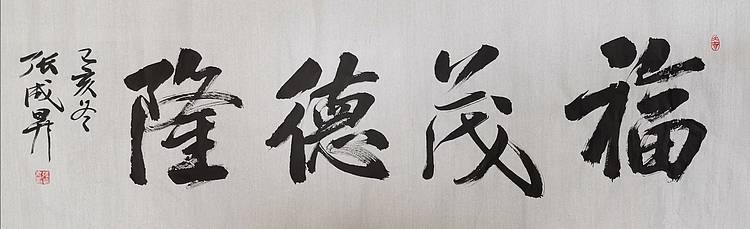 福茂德隆
己亥冬
张成昇